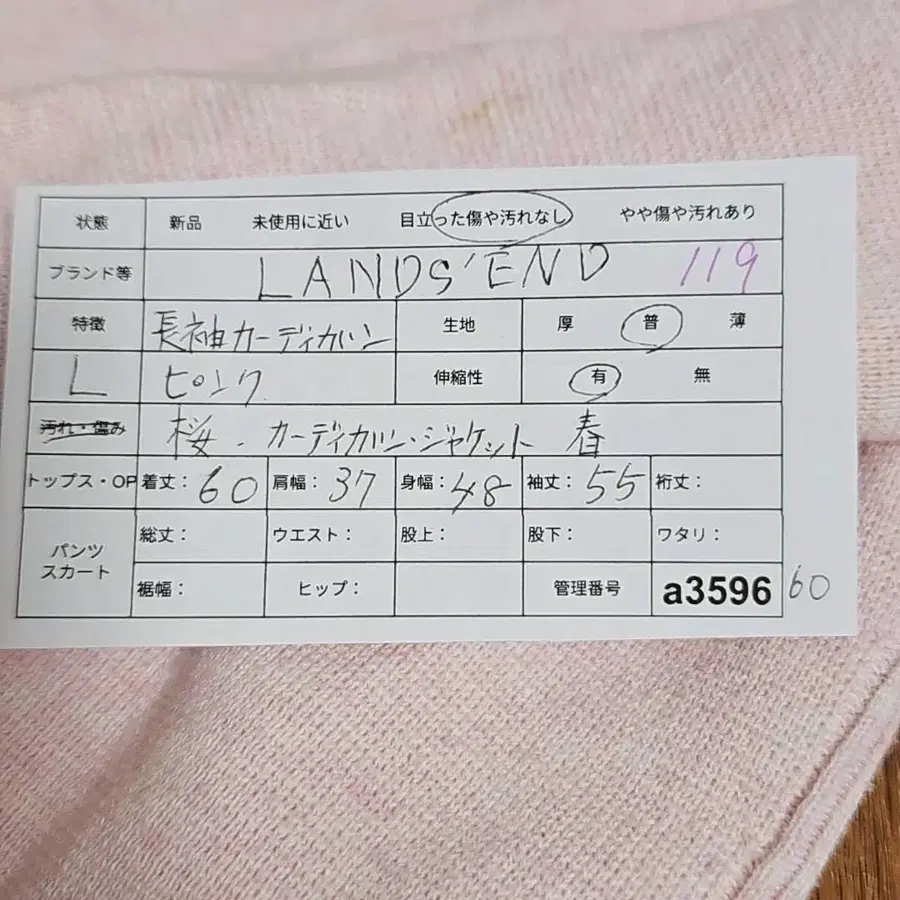 状態 新品 未使用に近い 目立った傷や汚れなし やや傷や汚れあり
ブランド等 LANDS'END 119
特徴 長袖カーディガン 生地 厚 普 薄
L ピンク 伸縮性 有 無
汚れ・傷み 桜.カーディガン・ジャケット 春
トップス・OP 着丈:60 肩幅:37 身幅:48 袖丈:55 裄丈:
パンツ スカート 総丈: ウエスト: 股上: 股下: ワタリ:
裾幅: ヒップ: 管理番号 a3596 60